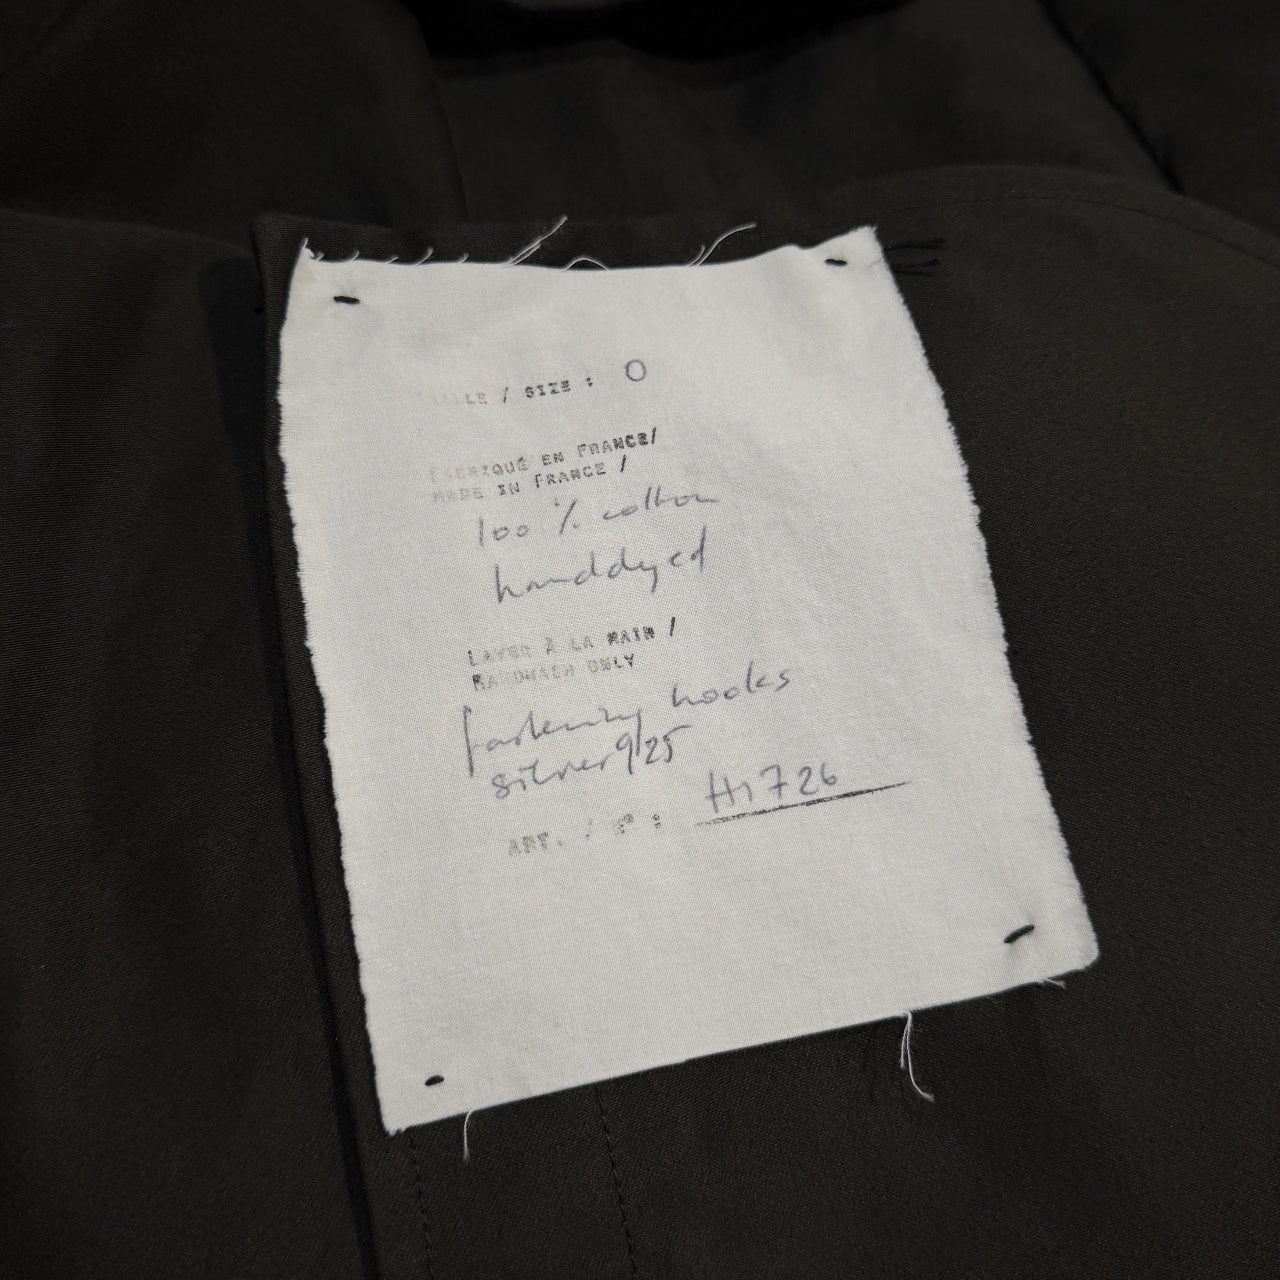 TAILLE / SIZE : 0
FABRIQUÉ EN FRANCE/
MADE IN FRANCE /
100 % cotton
handdyed
LAVER À LA MAIN /
HANDWASH ONLY
fastening hooks
silver 9/25
ART. / : H1726